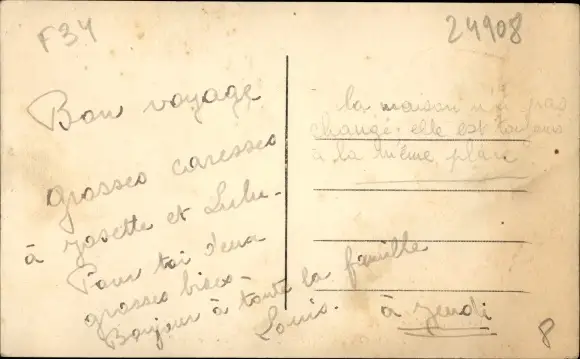 F34
24908
Bon voyage
grosses caresses
à Josette et Lulu.
Pour toi deux
grosses bises
Bonjour à toute la famille
Louis.
à jeudi
la maison n'a pas
changé, elle est toujours
à la même place
8